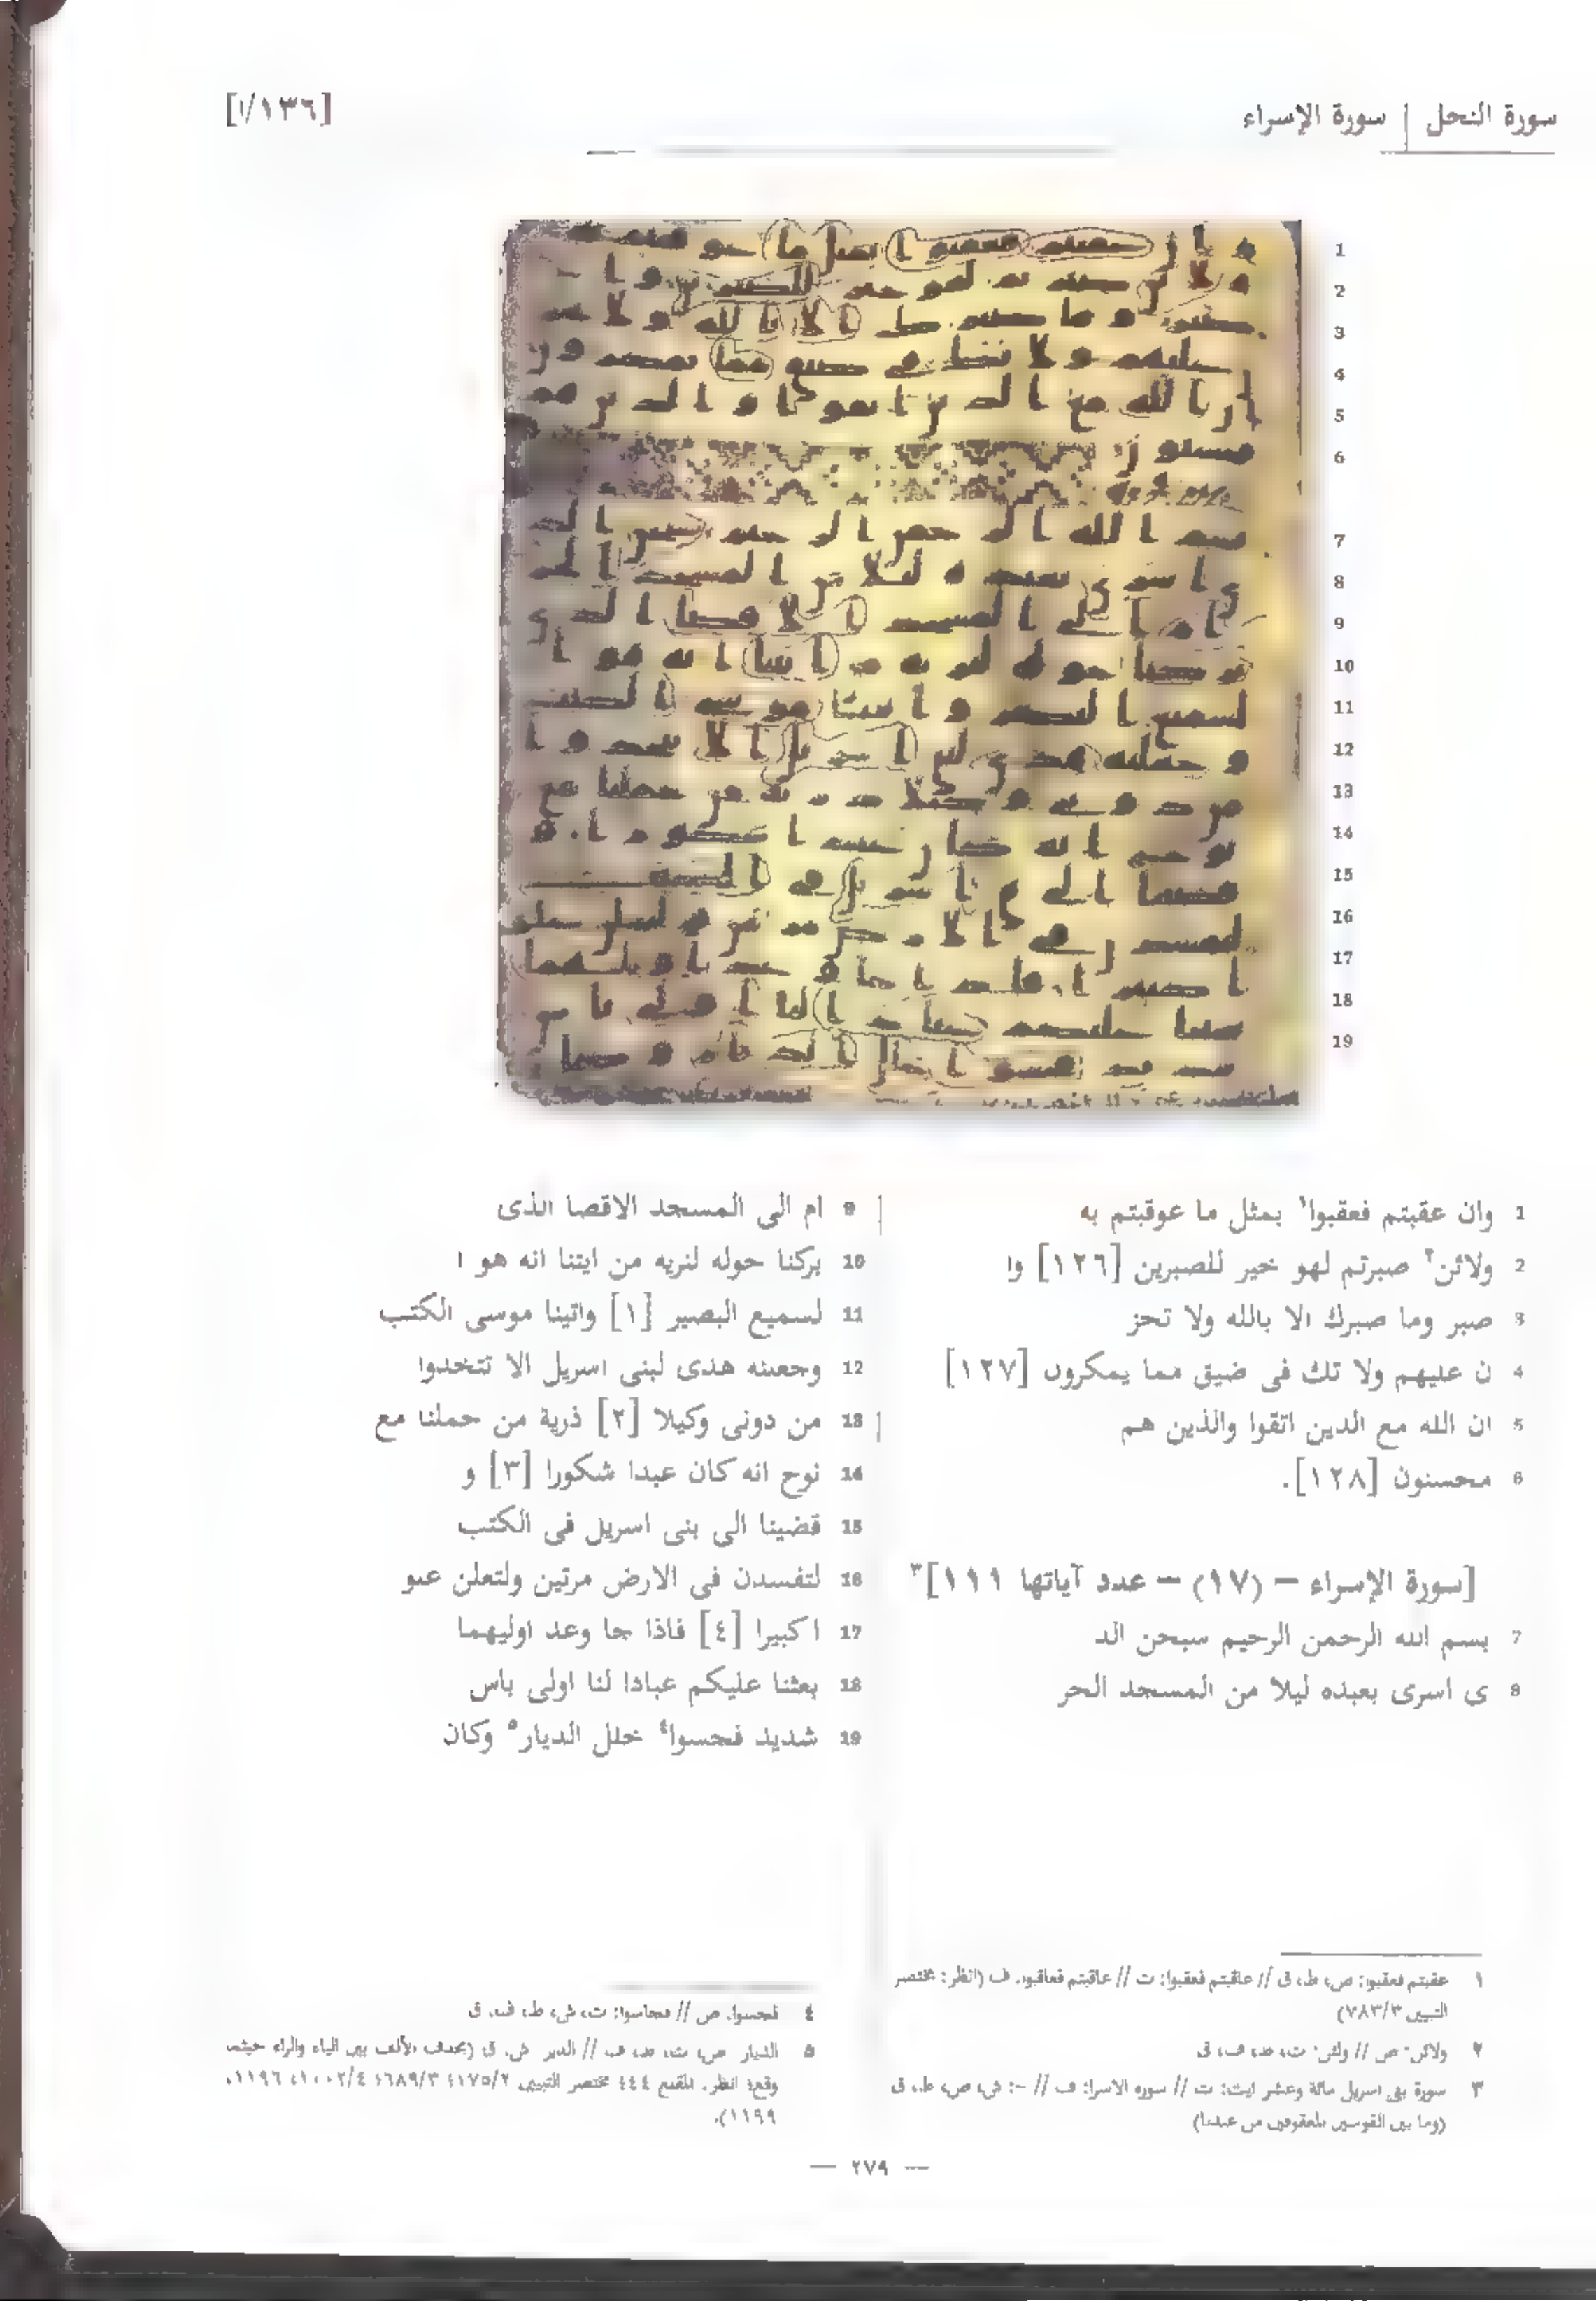 سورة النحل | سورة الإسراء
[١٣٦/ا]
1 وان عقبتم فعقبوا١ بمثل ما عوقبتم به
2 ولائن٢ صبرتم لهو خير للصبرين [١٢٦] وا
3 صبر وما صبرك الا بالله ولا تحز
4 ن عليهم ولا تك فى ضيق مما يمكرون [١٢٧]
5 ان الله مع الذين اتقوا والذين هم
6 محسنون [١٢٨].
[سورة الإسراء – (١٧) – عدد آياتها ١١١]٣
7 بسم الله الرحمن الرحيم سبحن الذ
8 ى اسرى بعبده ليلا من المسجد الحر
9 ام الى المسجد الاقصا الذى
10 بركنا حوله لنريه من ايتنا انه هو ا
11 لسميع البصير [١] واتينا موسى الكتب
12 وجعلنه هدى لبنى اسريل الا تتخذوا
13 من دونى وكيلا [٢] ذرية من حملنا مع
14 نوح انه كان عبدا شكورا [٣] و
15 قضينا الى بنى اسريل فى الكتب
16 لتفسدن فى الارض مرتين ولتعلن علو
17 ا كبيرا [٤] فاذا جا وعد اوليهما
18 بعثنا عليكم عبادا لنا اولى باس
19 شديد فحسوا٤ خلل الديار٥ وكان
١ عقبتم فعقبوا: ص، ط، ق // عاقبتم فعقبوا: ت // عاقبتم فعاقبوا: ف (انظر: مختصر
التبيين ٧٨٣/٣)
٢ ولائن: ص // ولئن: ت، ط، ف، ق
٣ سورة بنى اسريل مائة وعشر ايت: ت // سورة الاسرا: ف // –: ش، ص، ط، ق
(وما بين القوسين المعقوفين من عندنا)
٤ فحسوا: ص // فجاسوا: ت، ش، ط، ف، ق
٥ الديار: ص، ت، ط، ف // الدير: ش، ق (بحذف الألف بين الياء والراء حيثما
وقع؛ انظر: المقنع ٤٤٤؛ مختصر التبيين ١٧٥/٢؛ ٦٨٩/٣؛ ١٠٠٢/٤، ١١٩٦،
١١٩٩).
— ٢٧٩ —